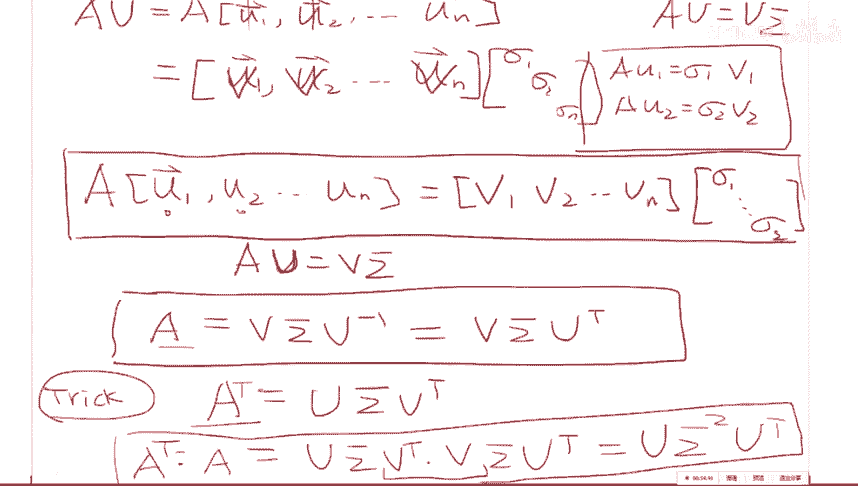 AU = A[u⃗₁, u⃗₂, ... uₙ] AU = VΣ
= [v⃗₁, v⃗₂ ... v⃗ₙ] [σ₁ σ₂ σₙ] Au₁ = σ₁ V₁
Au₂ = σ₂ V₂
A [u⃗₁, u₂ ... uₙ] = [V₁ V₂ ... Vₙ] [σ₁ ... σ₂]
AU = VΣ
A = VΣU⁻¹ = VΣUᵀ
Trick Aᵀ = UΣVᵀ
Aᵀ·A = UΣVᵀ·VΣUᵀ = UΣ²Uᵀ